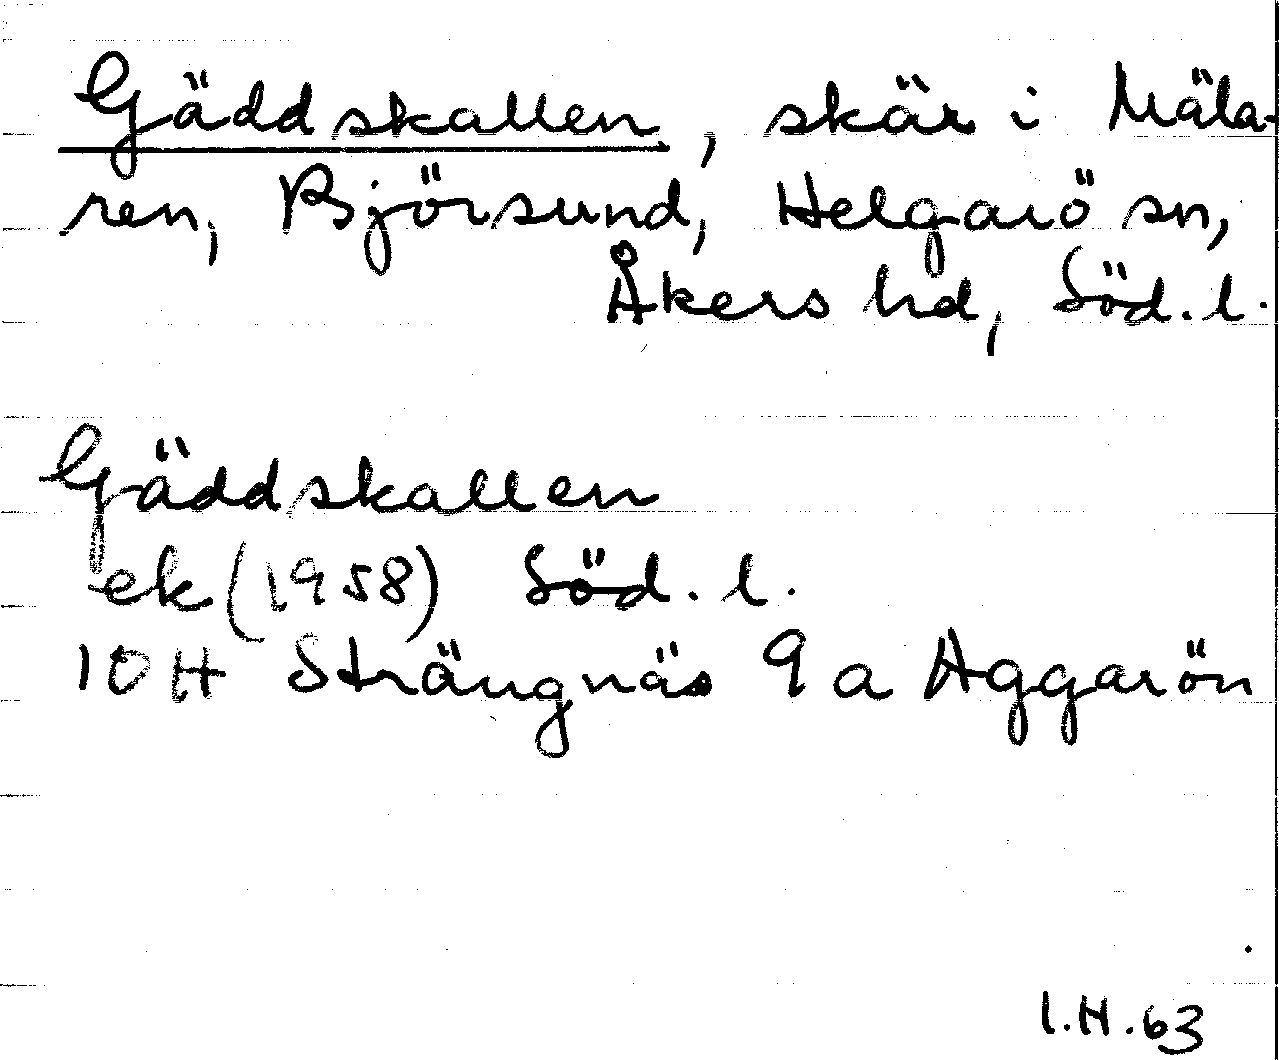 Gäddskallen, skär i Mäla-
ren, Björsund, Helgarö sn,
Åkers hd, Söd. l.
Gäddskallen
ek (1958) Söd. l.
10 H Strängnäs 9 a Aggarön
I.H. 63